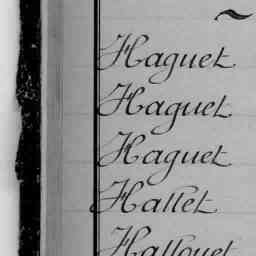 ~
Haguet
Haguet
Haguet
Hallet
Hallouet